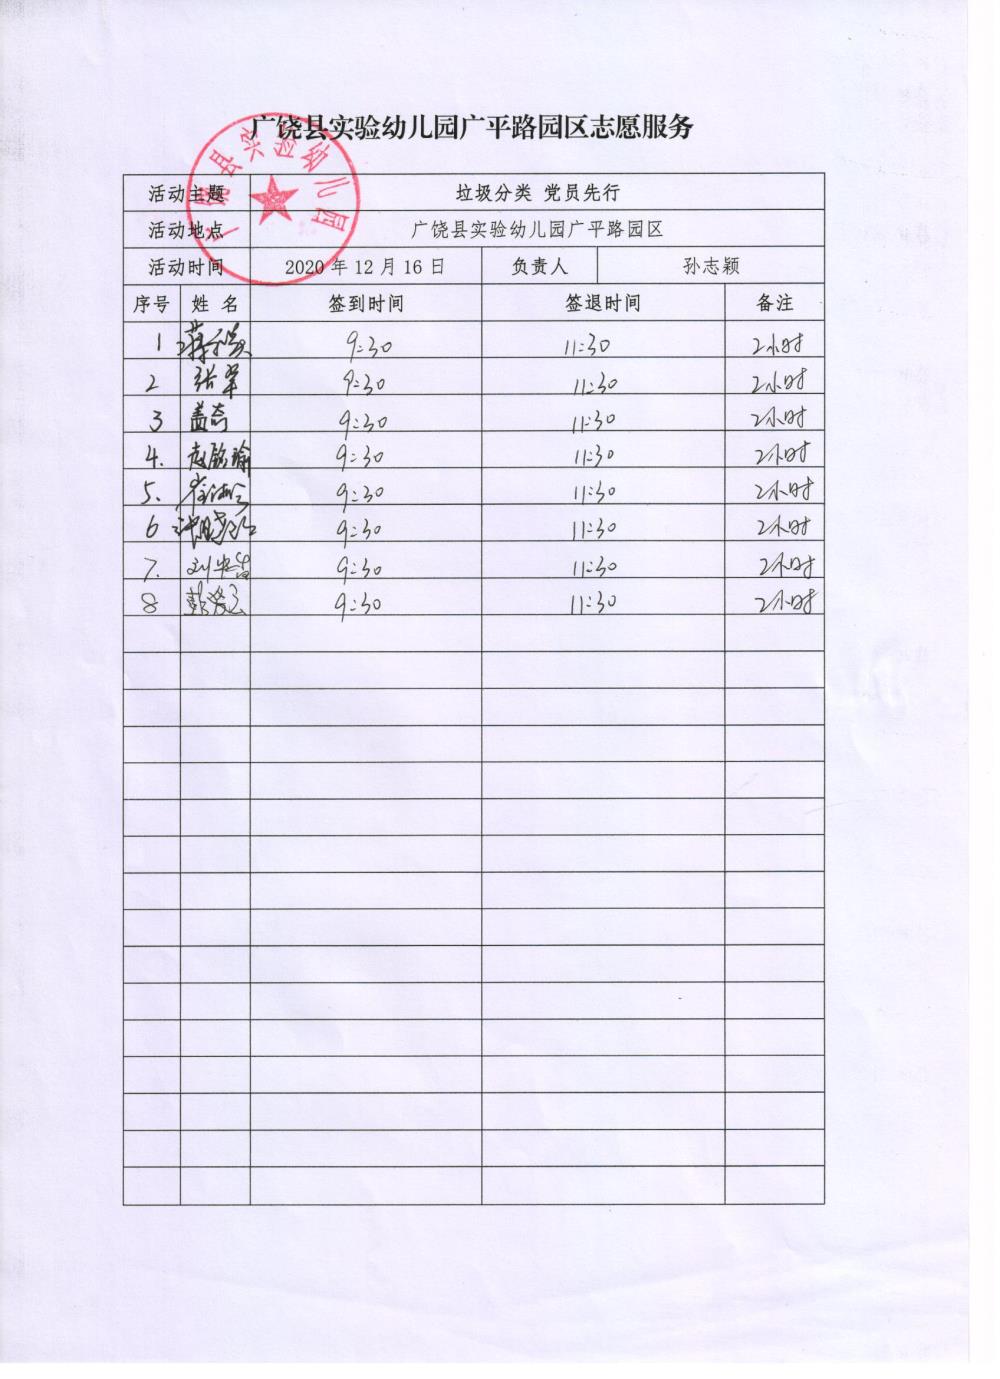 广饶县实验幼儿园广平路园区志愿服务
广饶县实验幼儿园
活动主题 垃圾分类 党员先行
活动地点 广饶县实验幼儿园广平路园区
活动时间 2020 年 12 月 16 日 负责人 孙志颖
序号 姓 名 签到时间 签退时间 备注
1 9:30 11:30 2小时
2 张军 9:30 11:30 2小时
3 盖奇 9:30 11:30 2小时
4. 赵铭瑜 9:30 11:30 2小时
5. 9:30 11:30 2小时
6 9:30 11:30 2小时
7. 9:30 11:30 2小时
8 9:30 11:30 2小时